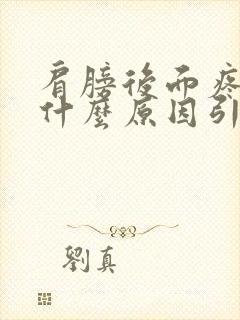 肩膀後而疼
什麼原因引
劉真